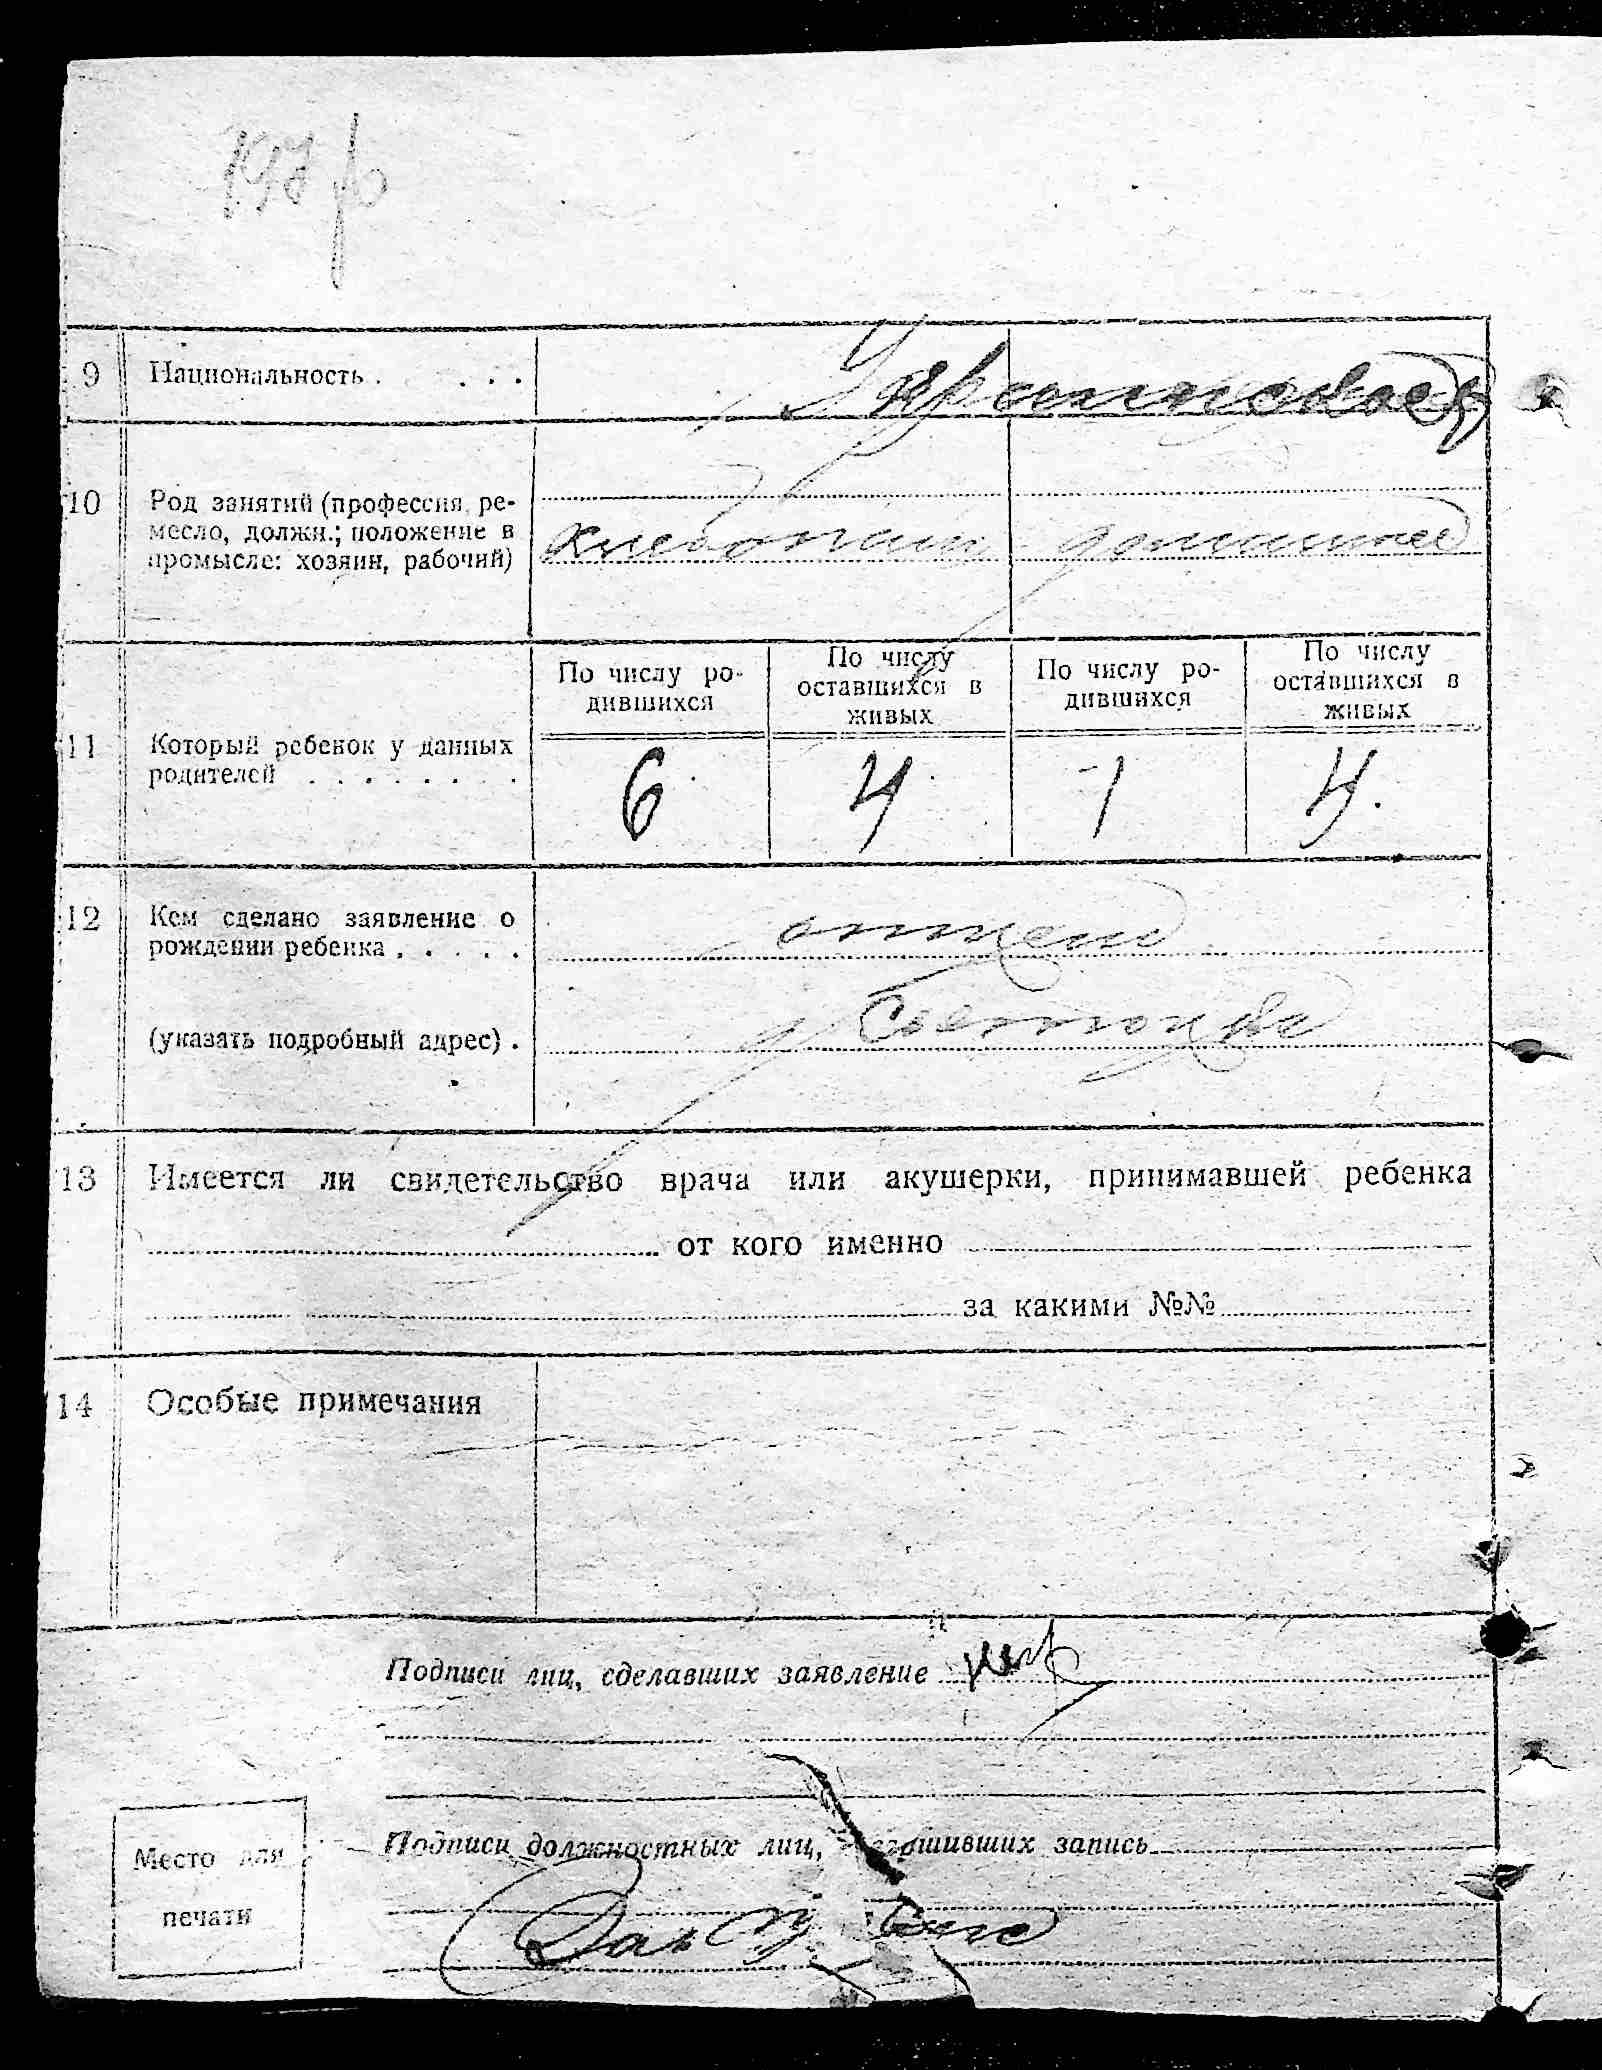 9 Национальность . . . .
10 Род занятий (профессия, ре-
месло, должн.; положение в
промысле: хозяин, рабочий)
хлебопаш домашнее
По числу ро-
дившихся
По числу
оставшихся в
живых
По числу ро-
дившихся
По числу
оставшихся в
живых
11 Который ребенок у данных
родителей . . . . . . . .
6 4 1 4.
12 Кем сделано заявление о
рождении ребенка . . . . .
отцем
(указать подробный адрес) .
13 Имеется ли свидетельство врача или акушерки, принимавшей ребенка
от кого именно
за какими №№
14 Особые примечания
Подписи лиц, сделавших заявление
Подписи должностных лиц, запись
Место для
печати